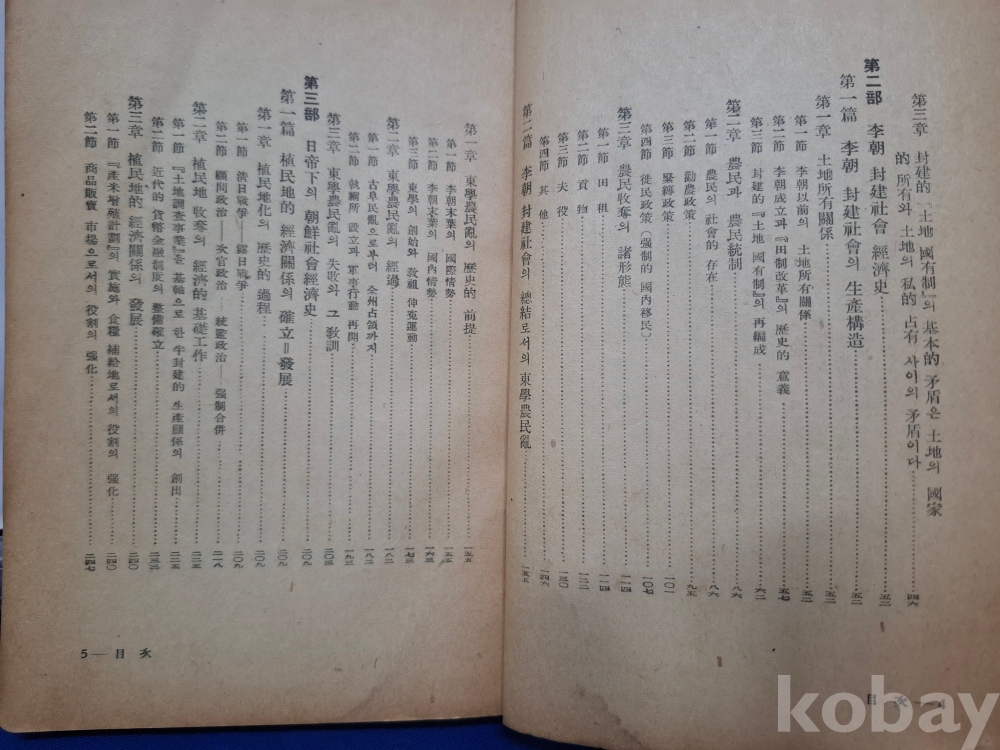 第三章 封建的 「土地 國有制」의 基本的 矛盾은 土地의 國家
的 所有와 土地의 私的 占有 사이의 矛盾이다……四六
第二部 李朝 封建社會 經濟史……五二
第一篇 李朝 封建社會의 生產構造……五二
第一章 土地所有關係……五二
第一節 李朝以前의 土地所有關係……五二
第二節 李朝成立과 『田制改革』의 歷史的 意義……五七
第三節 封建的 『土地 國有制』의 再編成……六二
第二章 農民과 農民統制……八六
第一節 農民의 社會的 存在……八六
第二節 勸農政策……九五
第三節 緊縛政策……一〇一
第四節 徙民政策 (强制的 國內移民)……一〇七
第三章 農民收奪의 諸形態……一一四
第一節 田 租……一一四
第二節 貢 物……一二二
第三節 夫 役……一三〇
第四節 其 他……一四六
第二篇 李朝 封建社會의 總結로서의 東學農民亂……一五五
目 次 — 4
第一章 東學農民亂의 歷史的 前提……一五五
第一節 李朝末葉의 國際情勢……一五五
第二節 李朝末葉의 國內情勢……一六三
第三節 東學의 創始와 敎祖 伸寃運動……一七三
第二章 東學農民亂의 經過……一八二
第一節 古阜民亂으로부터 全州占領까지……一八二
第二節 執綱所 設立과 軍事行動 再開……一九三
第三章 東學農民亂의 失敗와 그 敎訓……二〇三
第三部 日帝下의 朝鮮社會經濟史……二〇九
第一篇 植民地的 經濟關係의 確立=發展……二〇九
第一章 植民地化의 歷史的 過程……二〇九
第一節 淸日戰爭——露日戰爭……二〇九
第二節 顧問政治——次官政治——統監政治——强制合併……二一八
第二章 植民地 收奪의 經濟的 基礎工作……二二五
第一節 『土地調査事業』을 基軸으로 한 半封建的 生産關係의 創出……二二五
第二節 近代的 貨幣金融制度의 整備確立……二三三
第三章 植民地的 經濟關係의 發展……二四〇
第一節 『産米增殖計劃』의 實施와 食糧 補給地로서의 役割의 强化……二四〇
第二節 商品販賣 市場으로서의 役割의 强化……二四七
5 — 目 次
kobay